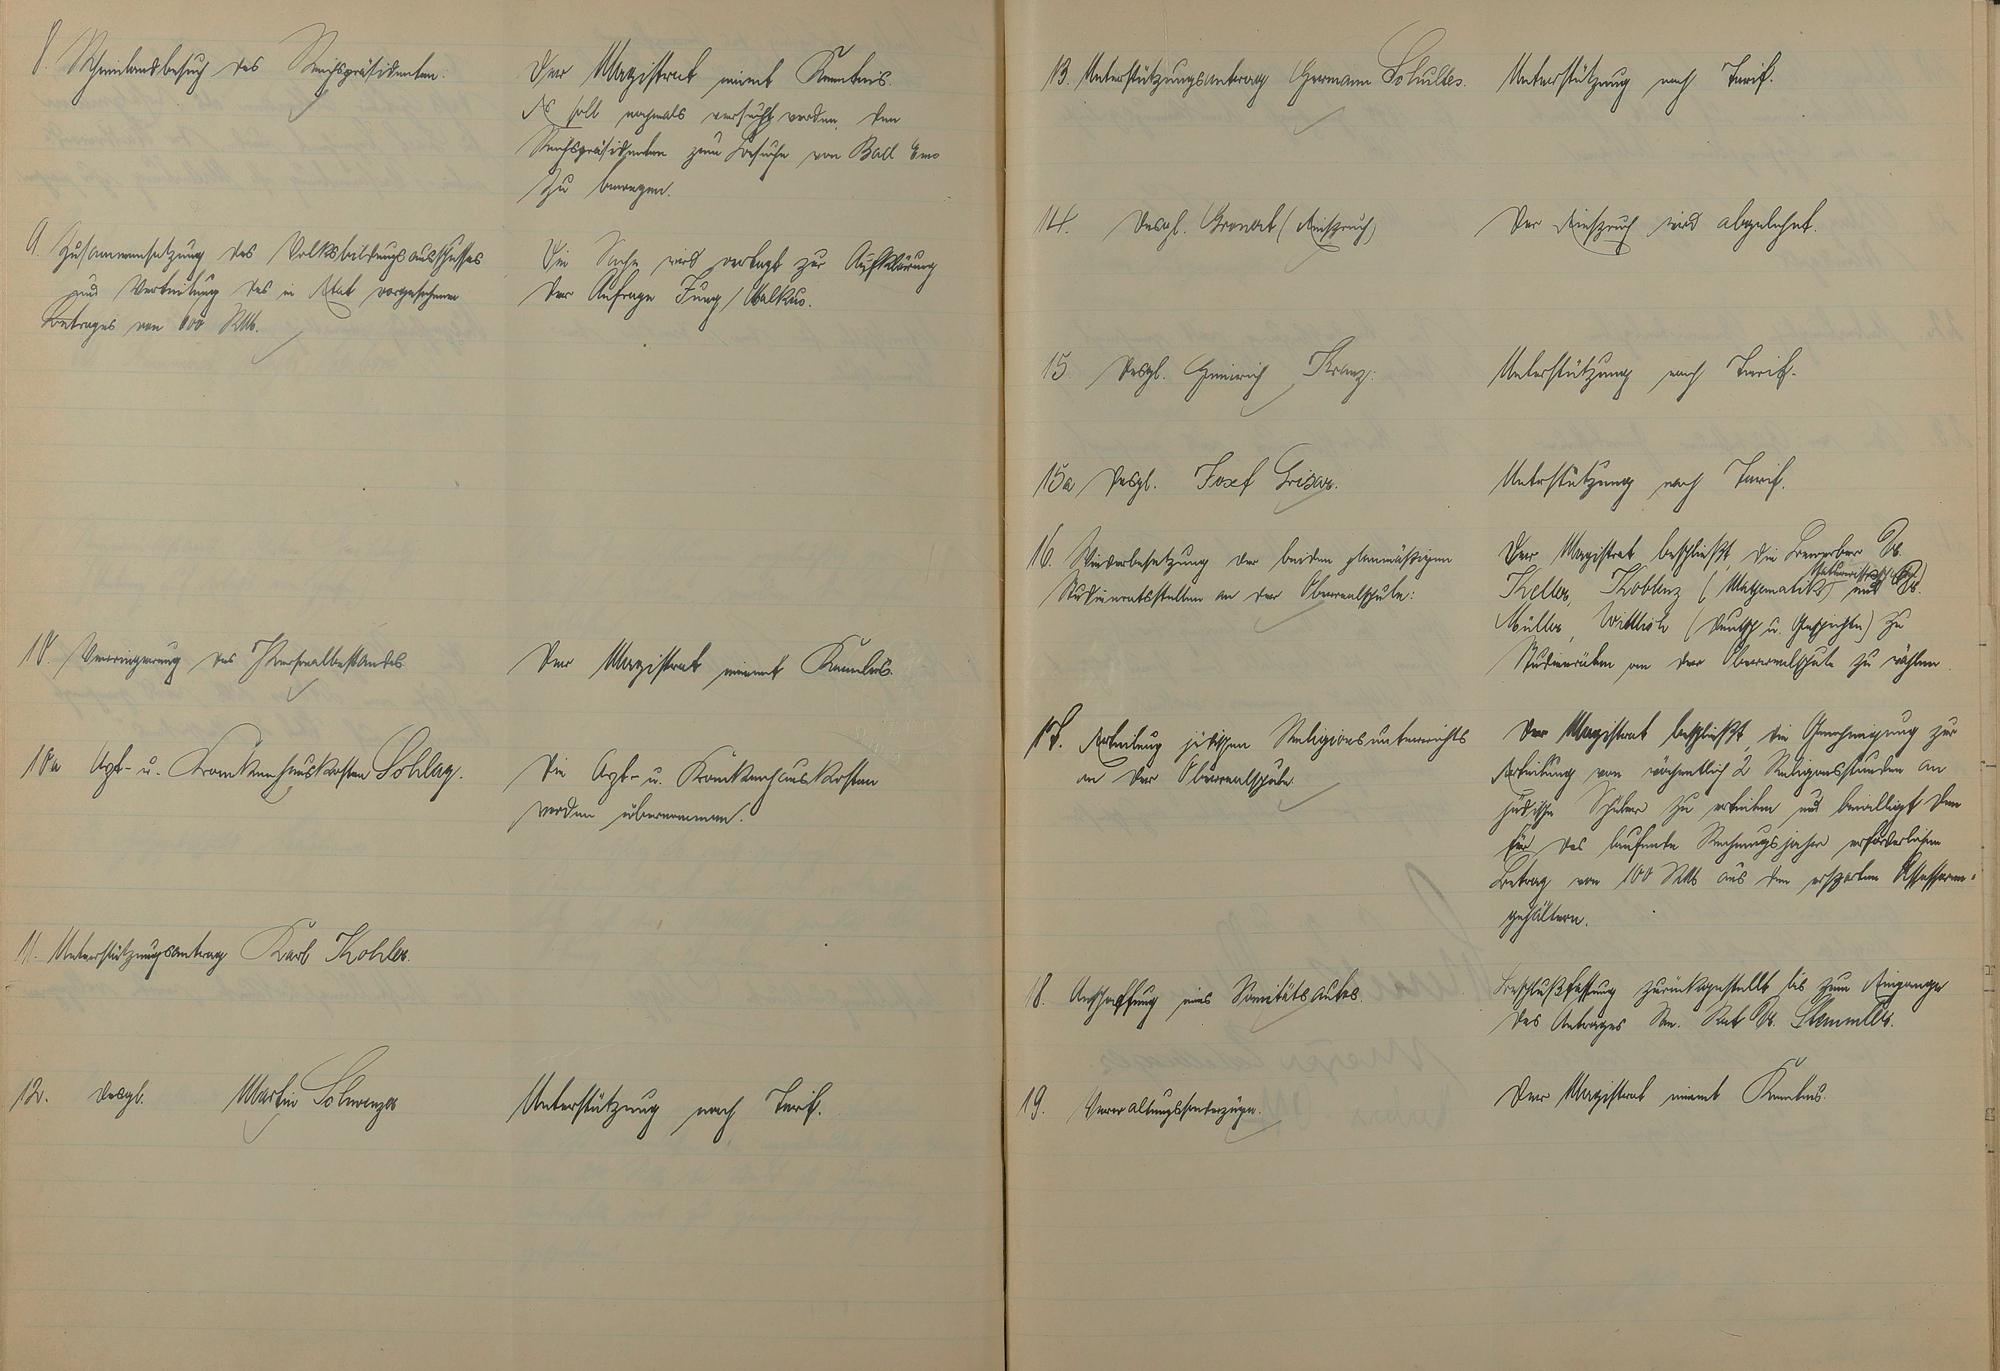 8. Rheinlandbesuch des Reichspräsidenten.
Der Magistrat nimmt Kenntnis.
Es soll nochmals versucht werden, den
Reichspräsidenten zum Besuche von Bad Ems
zu bewegen.
9. Zusammensetzung des Volksbildungsausschusses
und Verteilung des im Etat vorgesehenen
Betrages von 600 RM.
Die Sache wird vertagt zur Aufklärung
der Anfrage Jung/Balkus.
10. Verringerung des Personalbestandes
Der Magistrat nimmt Kenntnis.
10a Arzt- u. Krankenhauskosten Schlag.
Die Arzt- u. Krankenhauskosten
werden übernommen.
11. Unterstützungsantrag Karl Kohler.
12. Desgl. Martin Schwenzer
Unterstützung nach Tarif.
13. Unterstützungsantrag Hermann Schultes.
Unterstützung nach Tarif.
14. Desgl. Gronat (Einspruch)
Der Einspruch wird abgelehnt.
15. Desgl. Heinrich Kranz.
Unterstützung nach Tarif.
15a Desgl. Josef Grisar.
Unterstützung nach Tarif.
16. Wiederbesetzung der beiden planmäßigen
Studienratsstellen an der Oberrealschule:
Der Magistrat beschließt, die Bewerber Dr.
Keller, Koblenz (Mathematik) und Dr.
Müller, Wittlich (Deutsch u. Geschichte) zu
Studienräten an der Oberrealschule zu wählen.
17. Erteilung jüdischen Religionsunterrichts
an der Oberrealschule
Der Magistrat beschließt, die Genehmigung zur
Erteilung von wöchentlich 2 Religionsstunden an
jüdische Schüler zu erteilen und bewilligt den
für das laufende Rechnungsjahr erforderlichen
Betrag von 100 RM aus den ersparten Assessoren-
gehältern.
18. Anschaffung eines Sanitätsautos.
Beschlußfassung zurückgestellt bis zum Eingange
des Antrages San. Rat Dr. Stemmler.
19. Verwaltungssonderzüge.
Der Magistrat nimmt Kenntnis.